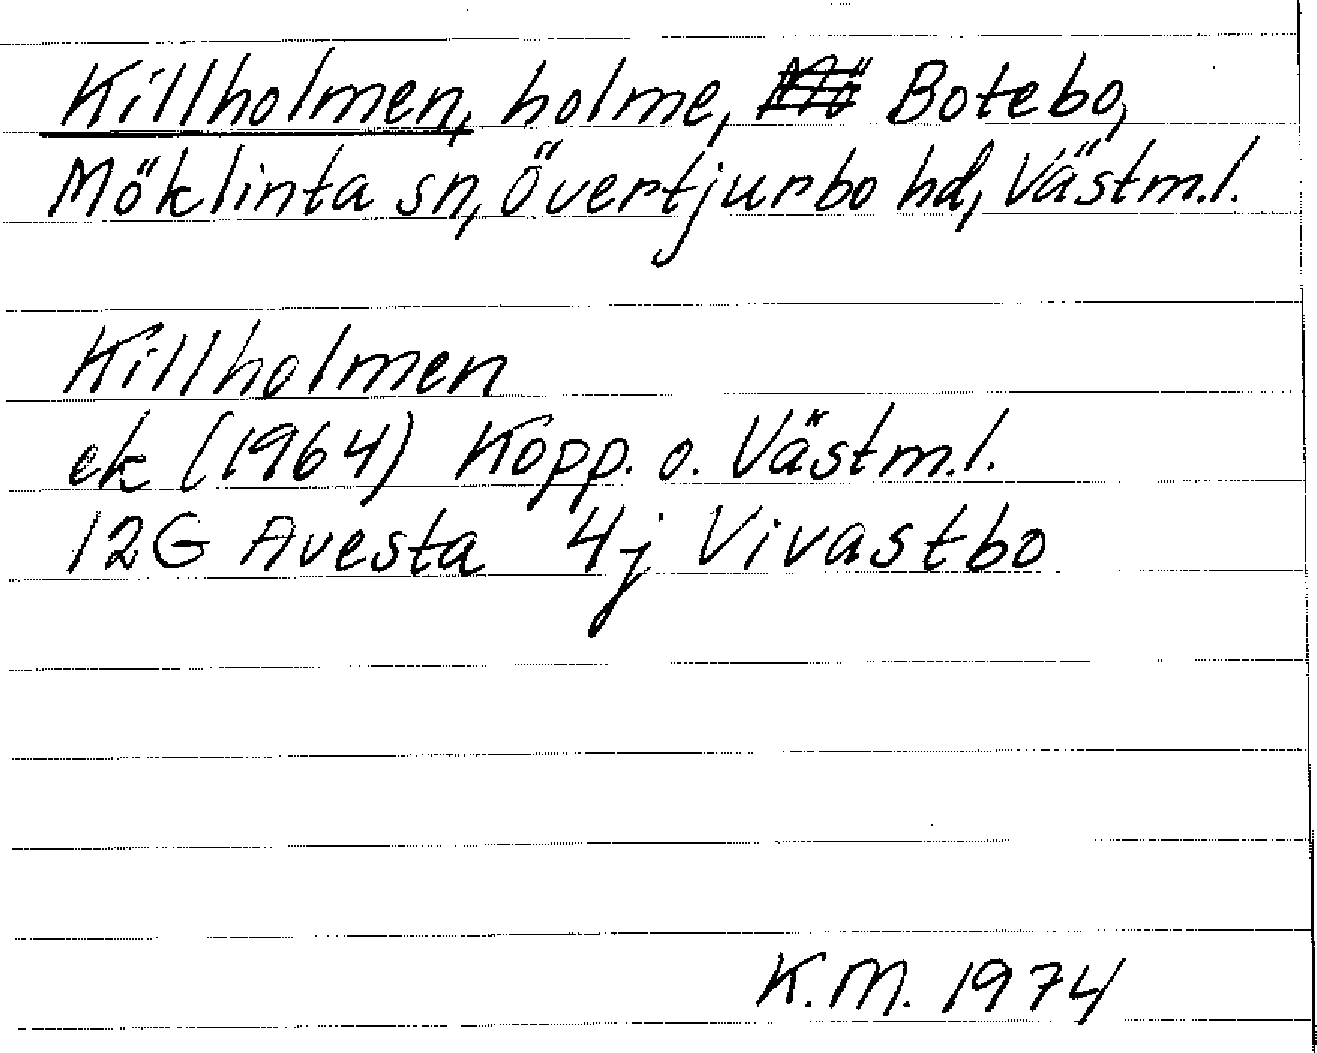 Killholmen, holme, Mö Botebo,
Möklinta sn, Övertjurbo hd, Västm.l.
Killholmen
ek (1964) Kopp. o. Västm.l.
12G Avesta 4j Vivastbo
K.M. 1974